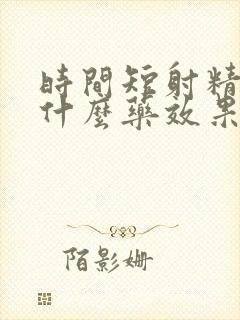 時間短射精
什麼藥效果
陌影姍